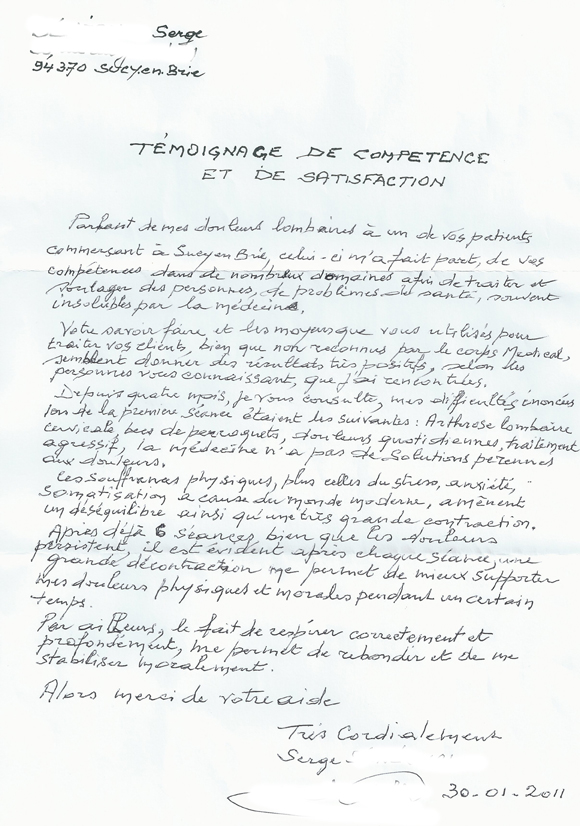 Serge
94370 Sucy en Brie
TÉMOIGNAGE DE COMPETENCE
ET DE SATISFACTION
Parlant de mes douleurs lombaires à un de vos patients
commerçant à Sucy en Brie, celui-ci m'a fait part, de vos
compétences dans de nombreux domaines afin de traiter et
soulager des personnes, de problèmes de santé, souvent
insolubles par la médecine.
Votre savoir faire et les moyens que vous utilisés pour
traiter vos clients, bien que non reconnus par le corps Medical,
semblent donner des résultats très positifs, selon les
personnes vous connaissant, que j'ai rencontrées.
Depuis quatre mois, je vous consulte, mes difficultés énoncées
lors de la première séance étaient les suivantes : Arthrose lombaire
cervicale, becs de perroquets, douleurs quotidiennes, traitement
agressif, la médecine n'a pas de solutions perennes
aux douleurs.
Les souffrances physiques, plus celles du stress, anxiété,
somatisation à cause du monde moderne, amènent
un déséquilibre ainsi qu'une très grande contraction.
Après déjà 6 séances, bien que les douleurs
persistent, il est évident après chaque séance, une
grande décontraction me permet de mieux supporter
mes douleurs physiques et morales pendant un certain
temps.
Par ailleurs, le fait de respirer correctement et
profondément, me permet de rebondir et de me
stabiliser moralement.
Alors merci de votre aide
Très Cordialement
Serge
30-01-2011